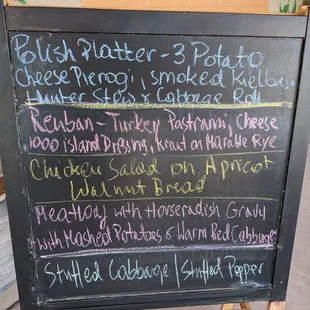 Polish Platter - 3 Potato
Cheese Pierogi, smoked Kielbasa
Hunter Stew & Cabbage Roll
Reuban - Turkey Pastrami, Cheese
1000 island Dressing, kraut on Marble Rye
Chicken Salad on Apricot
Walnut Bread
Meatloaf with Horseradish Gravy
with Mashed Potatoes & Warm Red Cabbage
Stuffed Cabbage | Stuffed Pepper